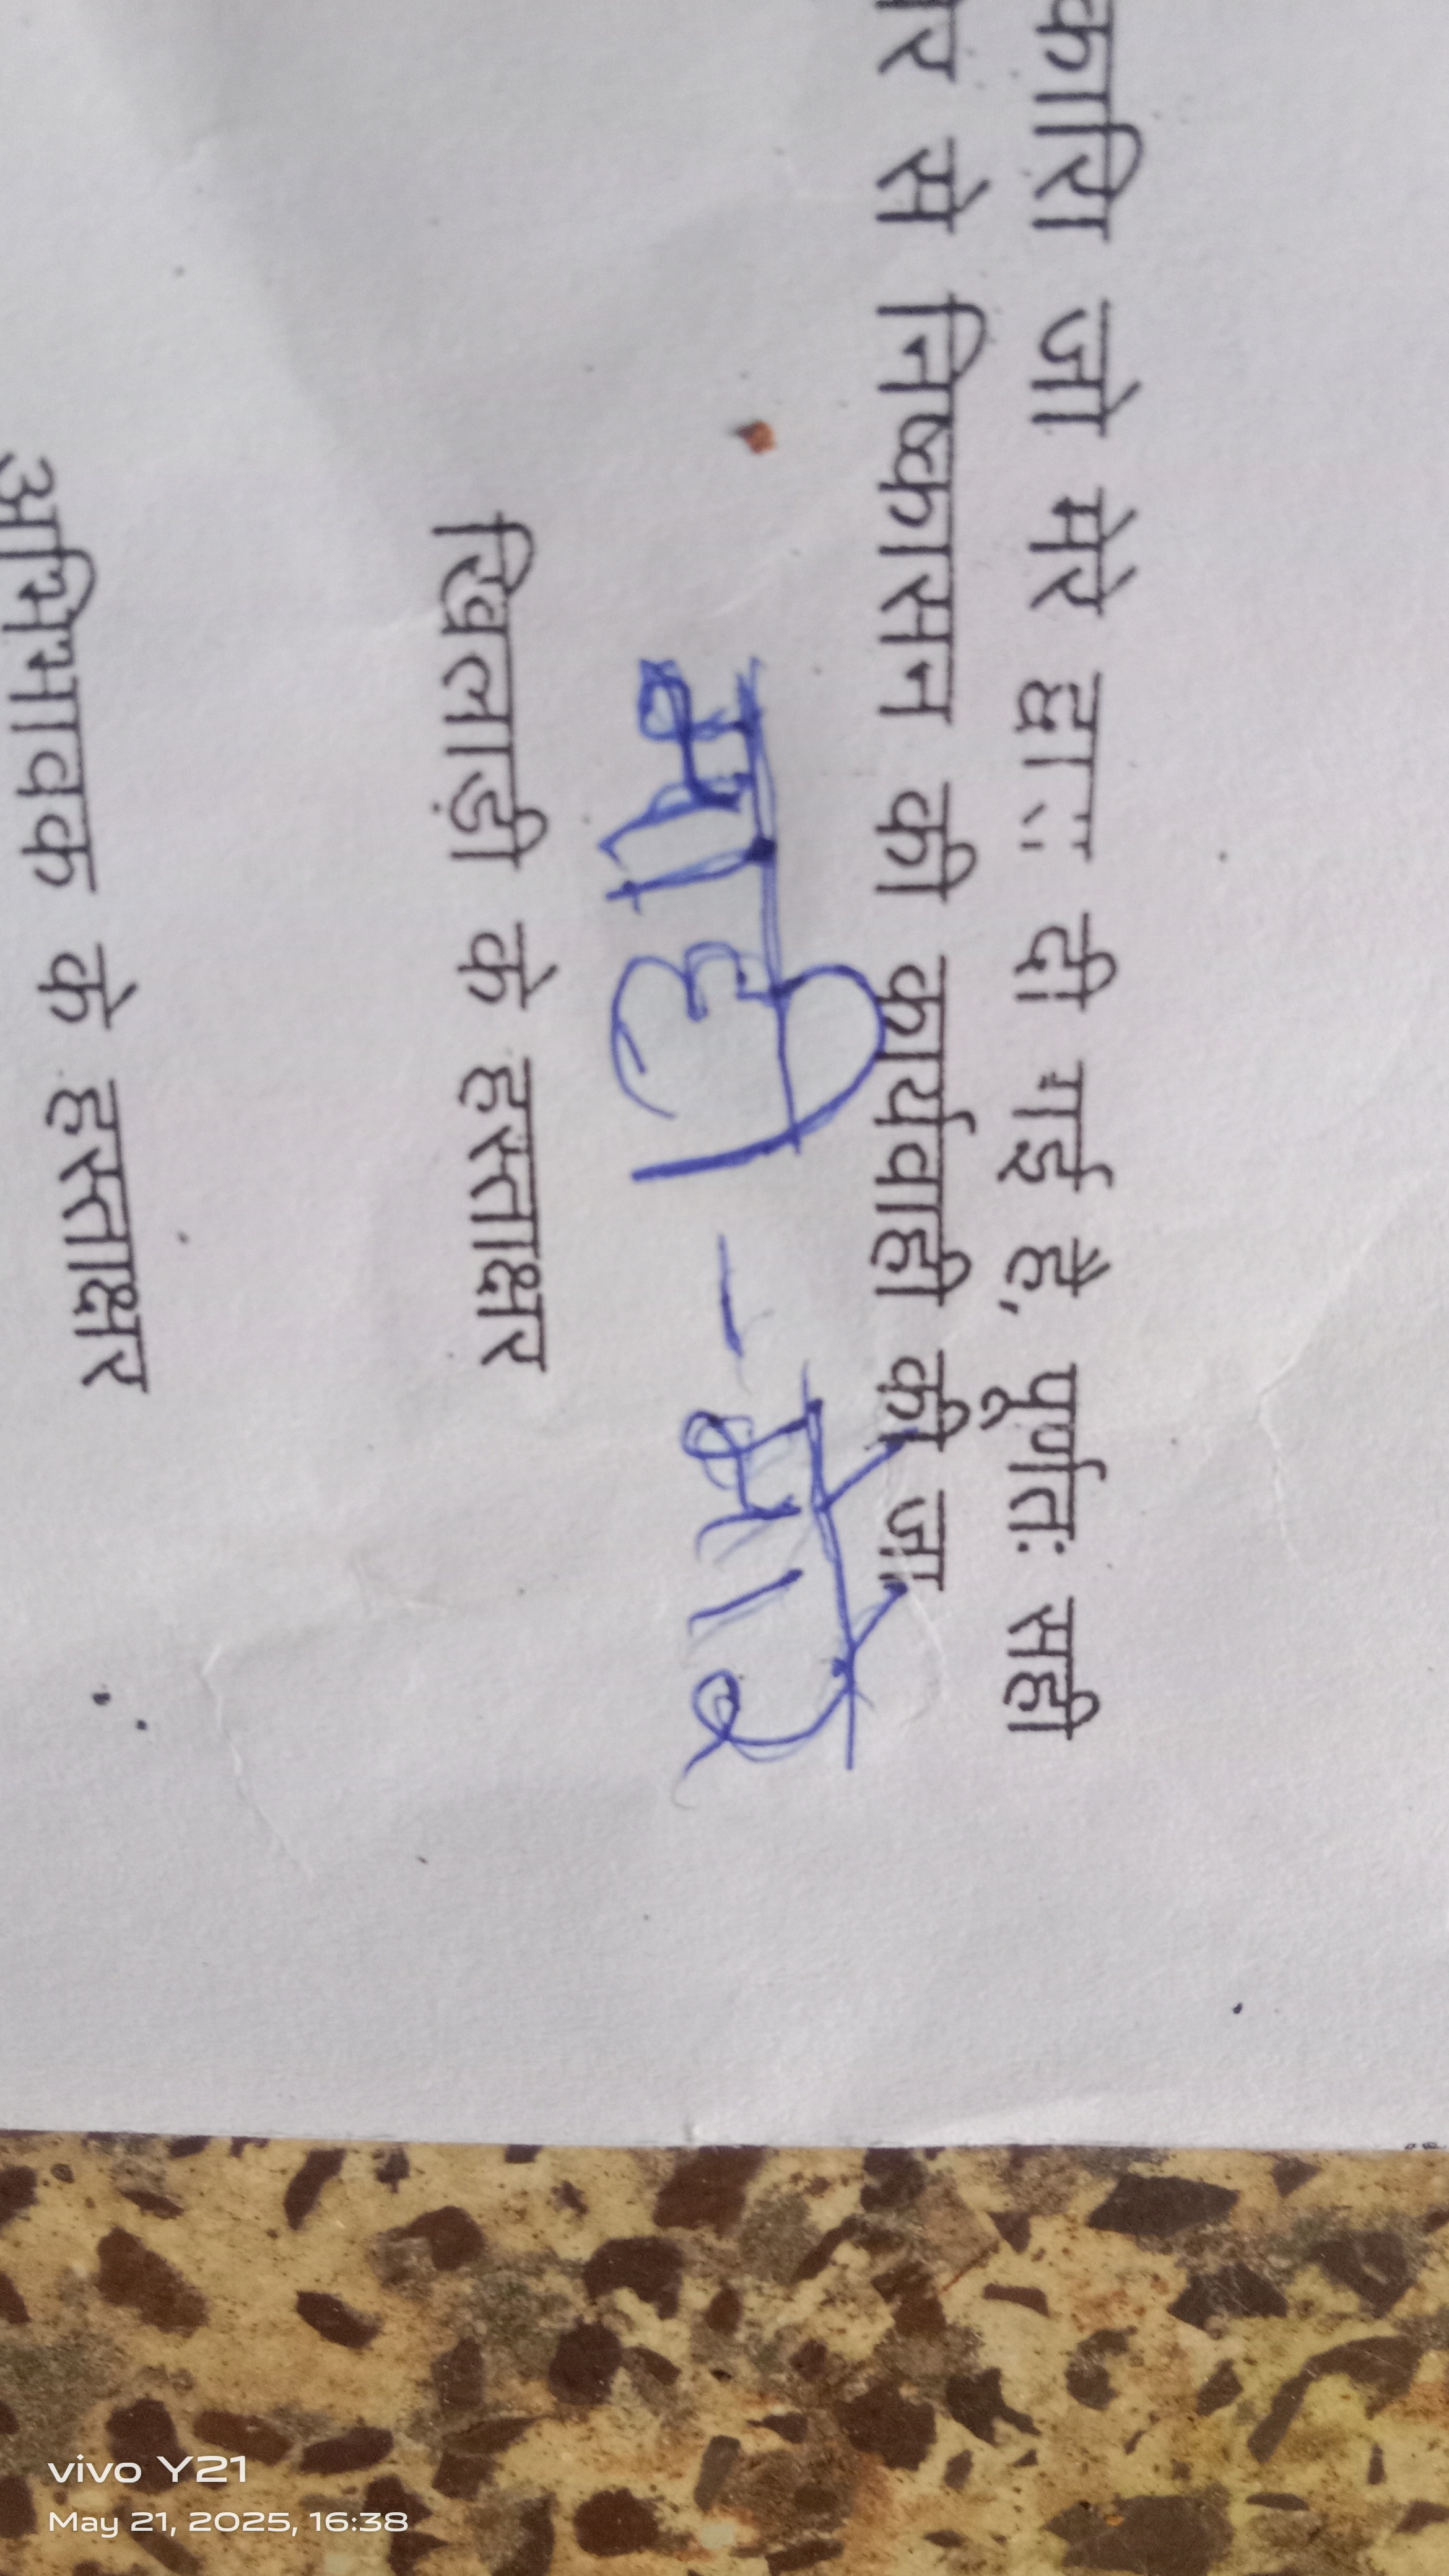 जो मेरे द्वारा दी गई है, पूर्णतः सही
से निष्कासन की कार्यवाही की जा
माही -
खिलाड़ी के हस्ताक्षर
अभिभावक के हस्ताक्षर
vivo Y21
May 21, 2025, 16:38